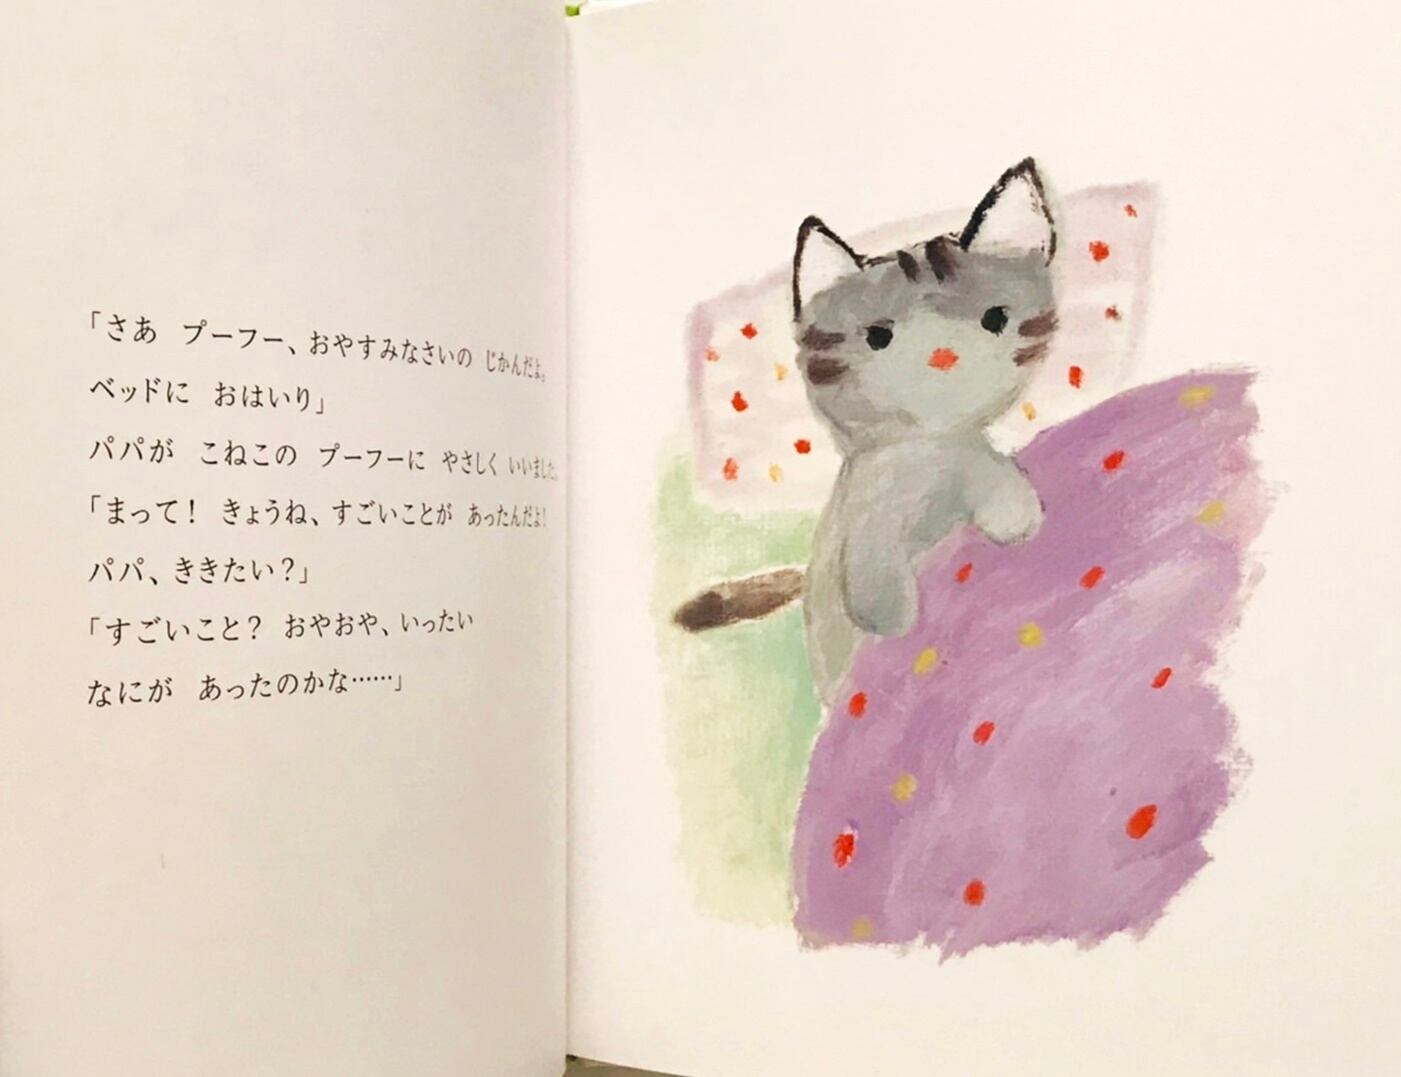 「さあ　プーフー、おやすみなさいの　じかんだよ。
ベッドに　おはいり」
パパが　こねこの　プーフーに　やさしく　いいました。
「まって！　きょうね、すごいことが　あったんだよ！
パパ、ききたい？」
「すごいこと？　おやおや、いったい
なにが　あったのかな……」